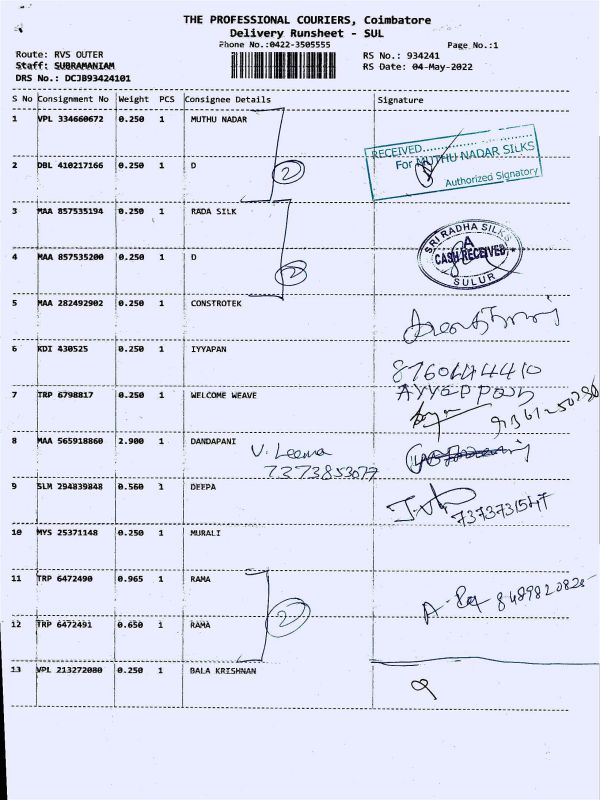 THE PROFESSIONAL COURIERS, Coimbatore
Delivery Runsheet - SUL
Phone No.:0422-3505555
Page No.:1
Route: RVS OUTER
RS No.: 934241
Staff: SUBRAMANIAM
RS Date: 04-May-2022
DRS No.: DCJB93424101
S No Consignment No Weight PCS Consignee Details Signature
1 VPL 334660672 0.250 1 MUTHU NADAR
RECEIVED..................
For MUTHU NADAR SILKS
Authorized Signatory
2 DBL 410217166 0.250 1 D
2
3 MAA 857535194 0.250 1 RADA SILK
SRI RADHA SILKS
CASH RECEIVED
SULUR
4 MAA 857535200 0.250 1 D
2
5 MAA 282492902 0.250 1 CONSTROTEK
6 KDI 430525 0.250 1 IYYAPAN
8760444410
7 TRP 6798817 0.250 1 WELCOME WEAVE
8 MAA 565918860 2.900 1 DANDAPANI
V. Leema
7273853077
9 SLM 294839848 0.560 1 DEEPA
7373731547
10 MYS 25371148 0.250 1 MURALI
11 TRP 6472490 0.965 1 RAMA
8489820825
12 TRP 6472491 0.650 1 RAMA
2
13 VPL 213272080 0.250 1 BALA KRISHNAN